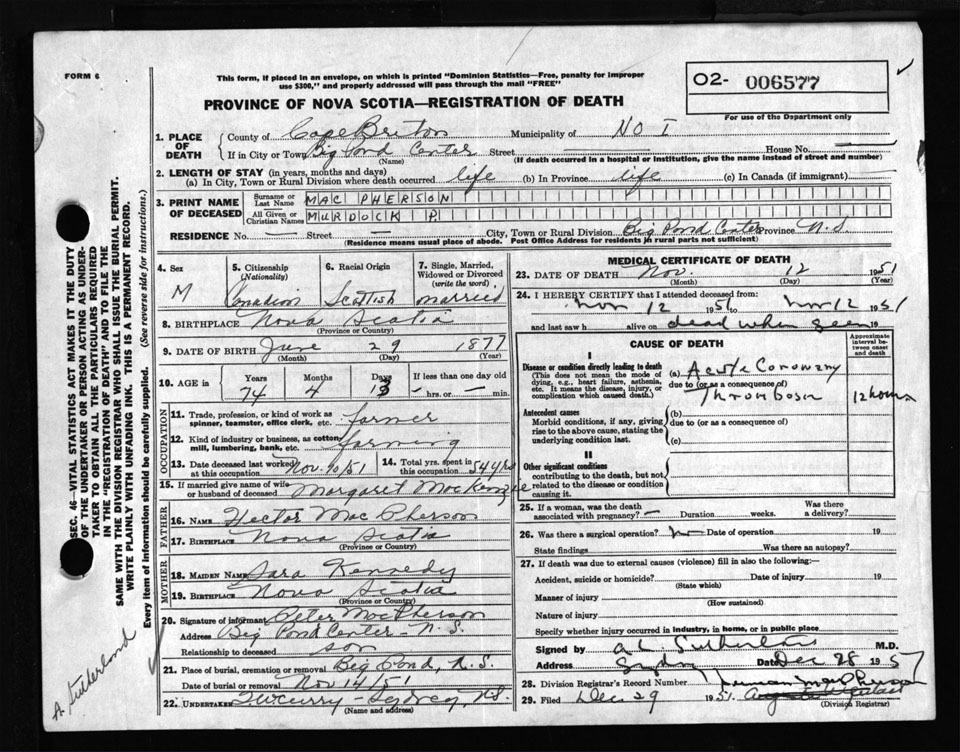 FORM 6
This form, if placed in an envelope, on which is printed "Dominion Statistics—Free, penalty for improper
use $300," and properly addressed will pass through the mail "FREE"
PROVINCE OF NOVA SCOTIA—REGISTRATION OF DEATH
02- 006577
For use of the Department only
1. PLACE OF DEATH
County of Cape Breton Municipality of NO I
If in City or Town Big Pond Center Street House No.
(Name) (If death occurred in a hospital or institution, give the name instead of street and number)
2. LENGTH OF STAY (in years, months and days)
(a) In City, Town or Rural Division where death occurred life (b) In Province life (c) In Canada (if immigrant)
3. PRINT NAME OF DECEASED
Surname or Last Name MAC PHERSON
All Given or Christian Names MURDOCK P.
RESIDENCE No. — Street — City, Town or Rural Division Big Pond Center Province N.S.
(Residence means usual place of abode. Post Office Address for residents in rural parts not sufficient)
4. Sex M
5. Citizenship (Nationality) Canadian
6. Racial Origin Scottish
7. Single, Married, Widowed or Divorced (write the word) married
8. BIRTHPLACE Nova Scotia
(Province or Country)
9. DATE OF BIRTH June 29 1877
(Month) (Day) (Year)
10. AGE in Years Months Days If less than one day old
74 4 13 — hrs. or — min.
OCCUPATION
11. Trade, profession, or kind of work as
spinner, teamster, office clerk, etc. farmer
12. Kind of industry or business, as cotton
mill, lumbering, bank, etc. farming
13. Date deceased last worked at this occupation Nov. 10/51
14. Total yrs. spent in this occupation 54 yrs
15. If married give name of wife
or husband of deceased Margaret MacKenzie
FATHER
16. NAME Hector MacPherson
17. BIRTHPLACE Nova Scotia
(Province or Country)
MOTHER
18. MAIDEN NAME Sara Kennedy
19. BIRTHPLACE Nova Scotia
(Province or Country)
20. Signature of informant Peter MacPherson
Address Big Pond Center - N.S.
Relationship to deceased son
21. Place of burial, cremation or removal Big Pond, N.S.
Date of burial or removal Nov 14/51
22. UNDERTAKER T. W. Curry Sydney, N.S.
(Name and address)
MEDICAL CERTIFICATE OF DEATH
23. DATE OF DEATH Nov. 12 1951
(Month) (Day) (Year)
24. I HEREBY CERTIFY that I attended deceased from:
Nov 12 1951 to Nov 12 1951
and last saw h alive on dead when seen 19
CAUSE OF DEATH
Approximate interval between onset and death
I
Disease or condition directly leading to death
(This does not mean the mode of dying, e.g., heart failure, asthenia, etc. It means the disease, injury, or complication which caused death.)
(a) Acute Coronary
due to (or as a consequence of)
Thrombosis 12 hours
Antecedent causes
Morbid conditions, if any, giving rise to the above cause, stating the underlying condition last.
(b)
due to (or as a consequence of)
(c)
II
Other significant conditions
contributing to the death, but not related to the disease or condition causing it.
25. If a woman, was the death associated with pregnancy? — Duration weeks. Was there a delivery?
26. Was there a surgical operation? no Date of operation 19
State findings Was there an autopsy?
27. If death was due to external causes (violence) fill in also the following:—
Accident, suicide or homicide? Date of injury 19
(State which)
Manner of injury
(How sustained)
Nature of injury
Specify whether injury occurred in industry, in home, or in public place
Signed by A. L. Sutherland M.D.
Address Sydney Date Dec 28 195
28. Division Registrar's Record Number
29. Filed Dec 29 1951.
(Division Registrar)
SEC. 46—VITAL STATISTICS ACT MAKES IT THE DUTY
OF THE UNDERTAKER OR PERSON ACTING AS UNDER-
TAKER TO OBTAIN ALL THE PARTICULARS REQUIRED
IN THE "REGISTRATION OF DEATH" AND TO FILE THE
SAME WITH THE DIVISION REGISTRAR WHO SHALL ISSUE THE BURIAL PERMIT.
WRITE PLAINLY WITH UNFADING INK. THIS IS A PERMANENT RECORD.
Every item of information should be carefully supplied. (See reverse side for instructions.)
A. Sutherland